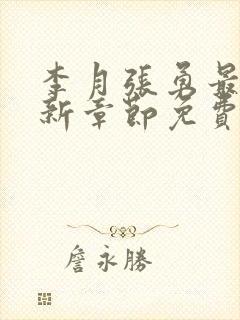 李月張勇最
新章節免費
詹永勝